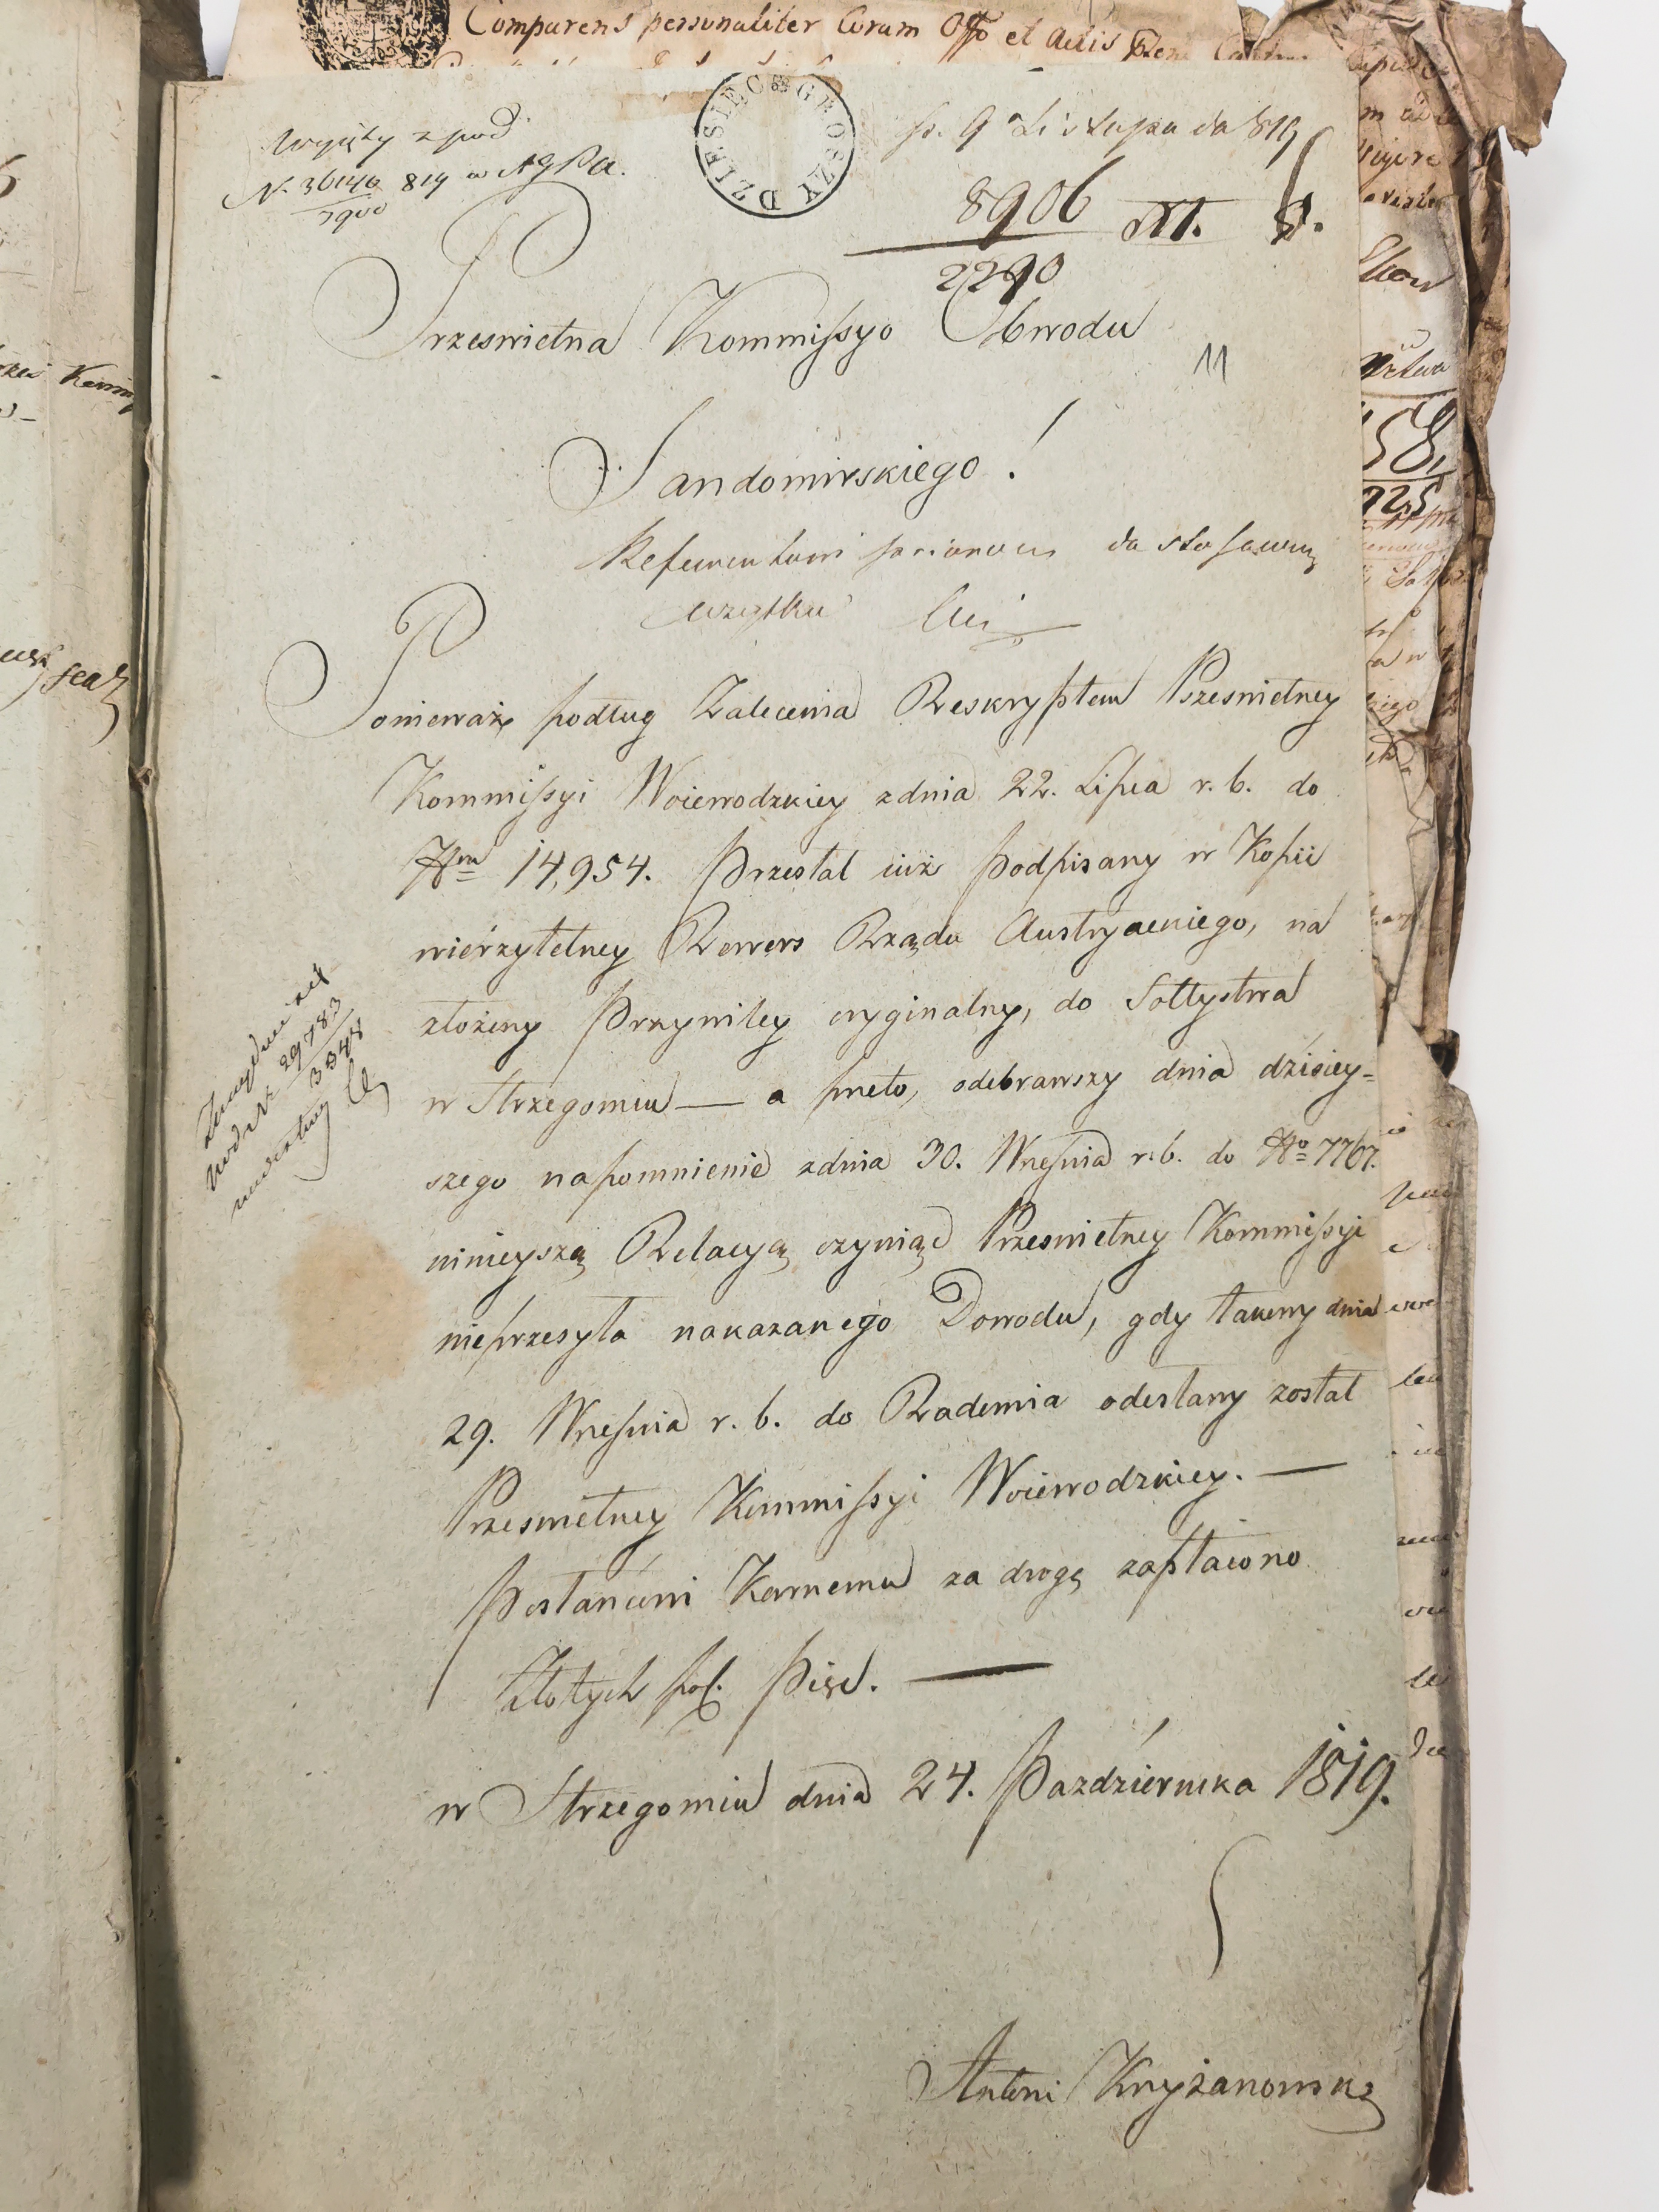 Comparens personaliter Coram Offo et Actis
DZIESIĘĆ GROSZY
Wyięty z pod
N. 36140 819 w
7900
p. 9 Listopada 819
8906
2290
Prześwietna Kommissyo Obwodu
11
Sandomirskiego!
do stosownego
użytku
Ponieważ podług Zalecenia Reskryptem Prześwietney
Kommissyi Woiewodzkiey z dnia 22. Lipca r. b. do
Nru 14,954. Przesłał iuż Podpisany w Kopii
wierzytelney Rewers Rządu Austryackiego, na
złożony Przywiley oryginalny, do Sołtystwa
w Strzegomiu — a przeto, odebrawszy dnia dzisiey=
szego napomnienie z dnia 30. Września r. b. do No 7767.
ninieyszą Relacyą czyniąc Prześwietney Kommissyi
nieprzesyła nakazanego Dowodu, gdy takowy dnia
29. Września r. b. do Radomia odesłany został
Prześwietney Kommissyi Woiewodzkiey. —
Posłańcowi Karnemu za drogę zapłacono
Złotych pol. Pięć. —
w Strzegomiu dnia 24. Października 1819.
Antoni Krzyżanowski
29783
3348